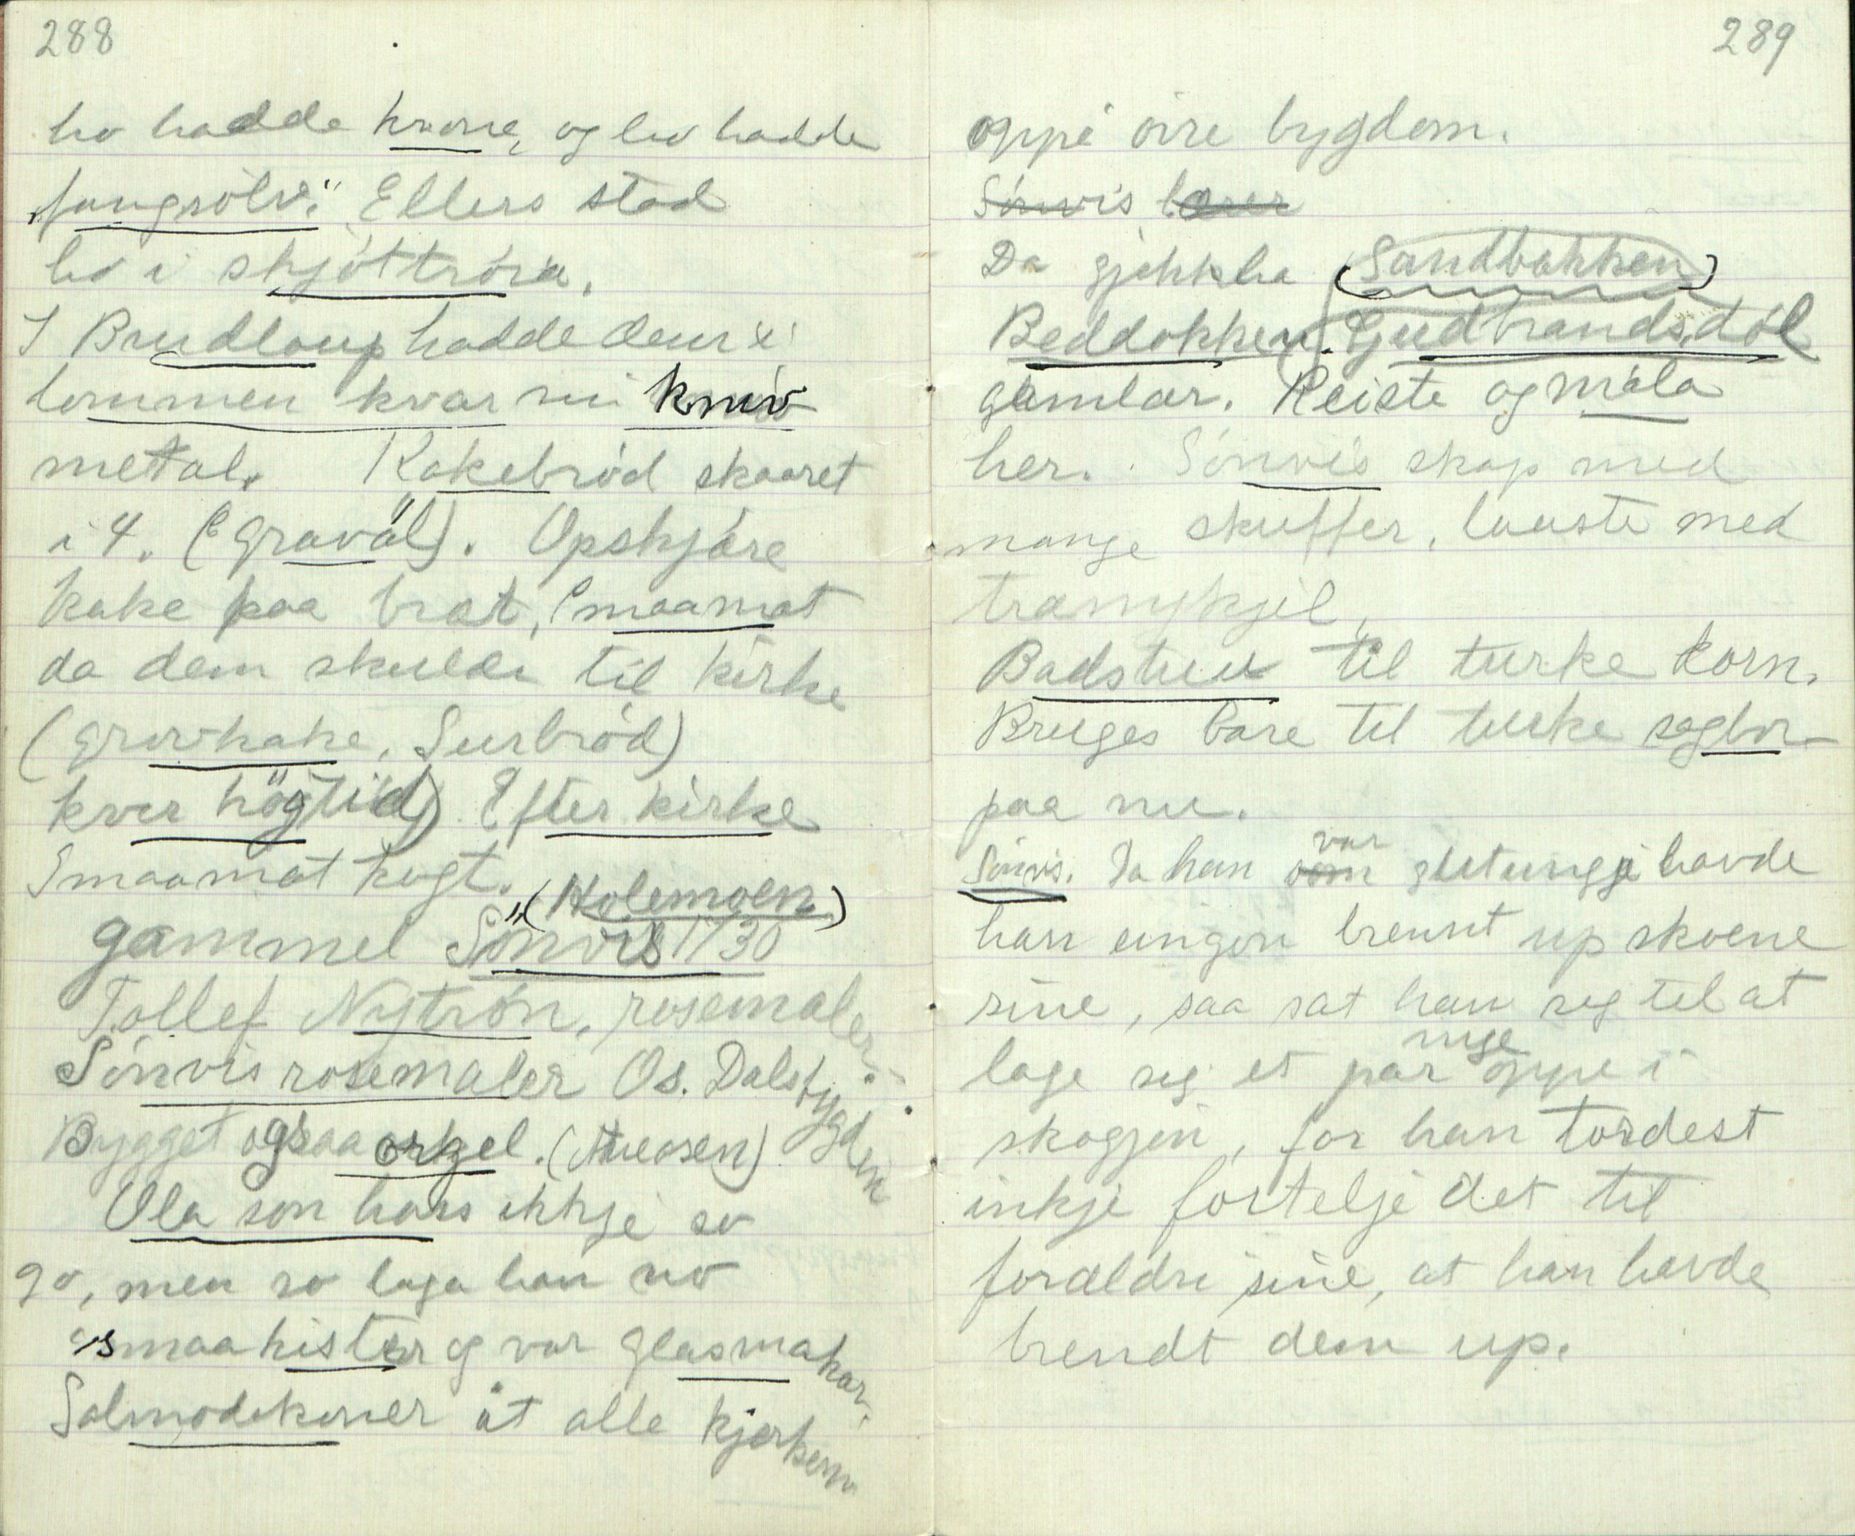 288
ho hadde krone, og ho hadde
"fangsölv". Ellers stod
ho i skjóttróia.
I Brudlaup hadde dem i
lommen kvar sin kniv
metal. Kakebröd skaaret
i 4. (Gravöl). Opskjäre
kake paa brat, Smaamat
da dem skulde til kirke
(grovkake, Surbröd)
kver högtid) Efter kirke
Smaamat kogt.
(Holemoen)
gammel Sönvis 1730
Tollef Nytrön, rosemaler.
Sönvis rosemaler Os. Dalsbygden
Bygget ogsaa orgel. (Aueosen)
Ola son hass ikkje so
go, men so laga han no
smaakister og var glasmakar.
Salmodikoner åt alle kjerkom
289
oppi öire bygdom.
Sönvis lærer
Da gjekk ha (Sandbakken)
Beddokken. Gudbrandsdöl
gamlar. Reiste og måla
her. Sönvis skap med
mange skuffer, lauste med
tramykjil.
Badstuu til turke korn.
Bruges bare til turke sagbor
paa nu.
Sönvis. Da han som var gjetungji havde
han eingon brennt up skoene
sine, saa sat han seg til at
lage seg et par nye oppe i
skogjin, for han tordest
inkje fortelje det til
foraldri sine, at han havde
brendt dem up.